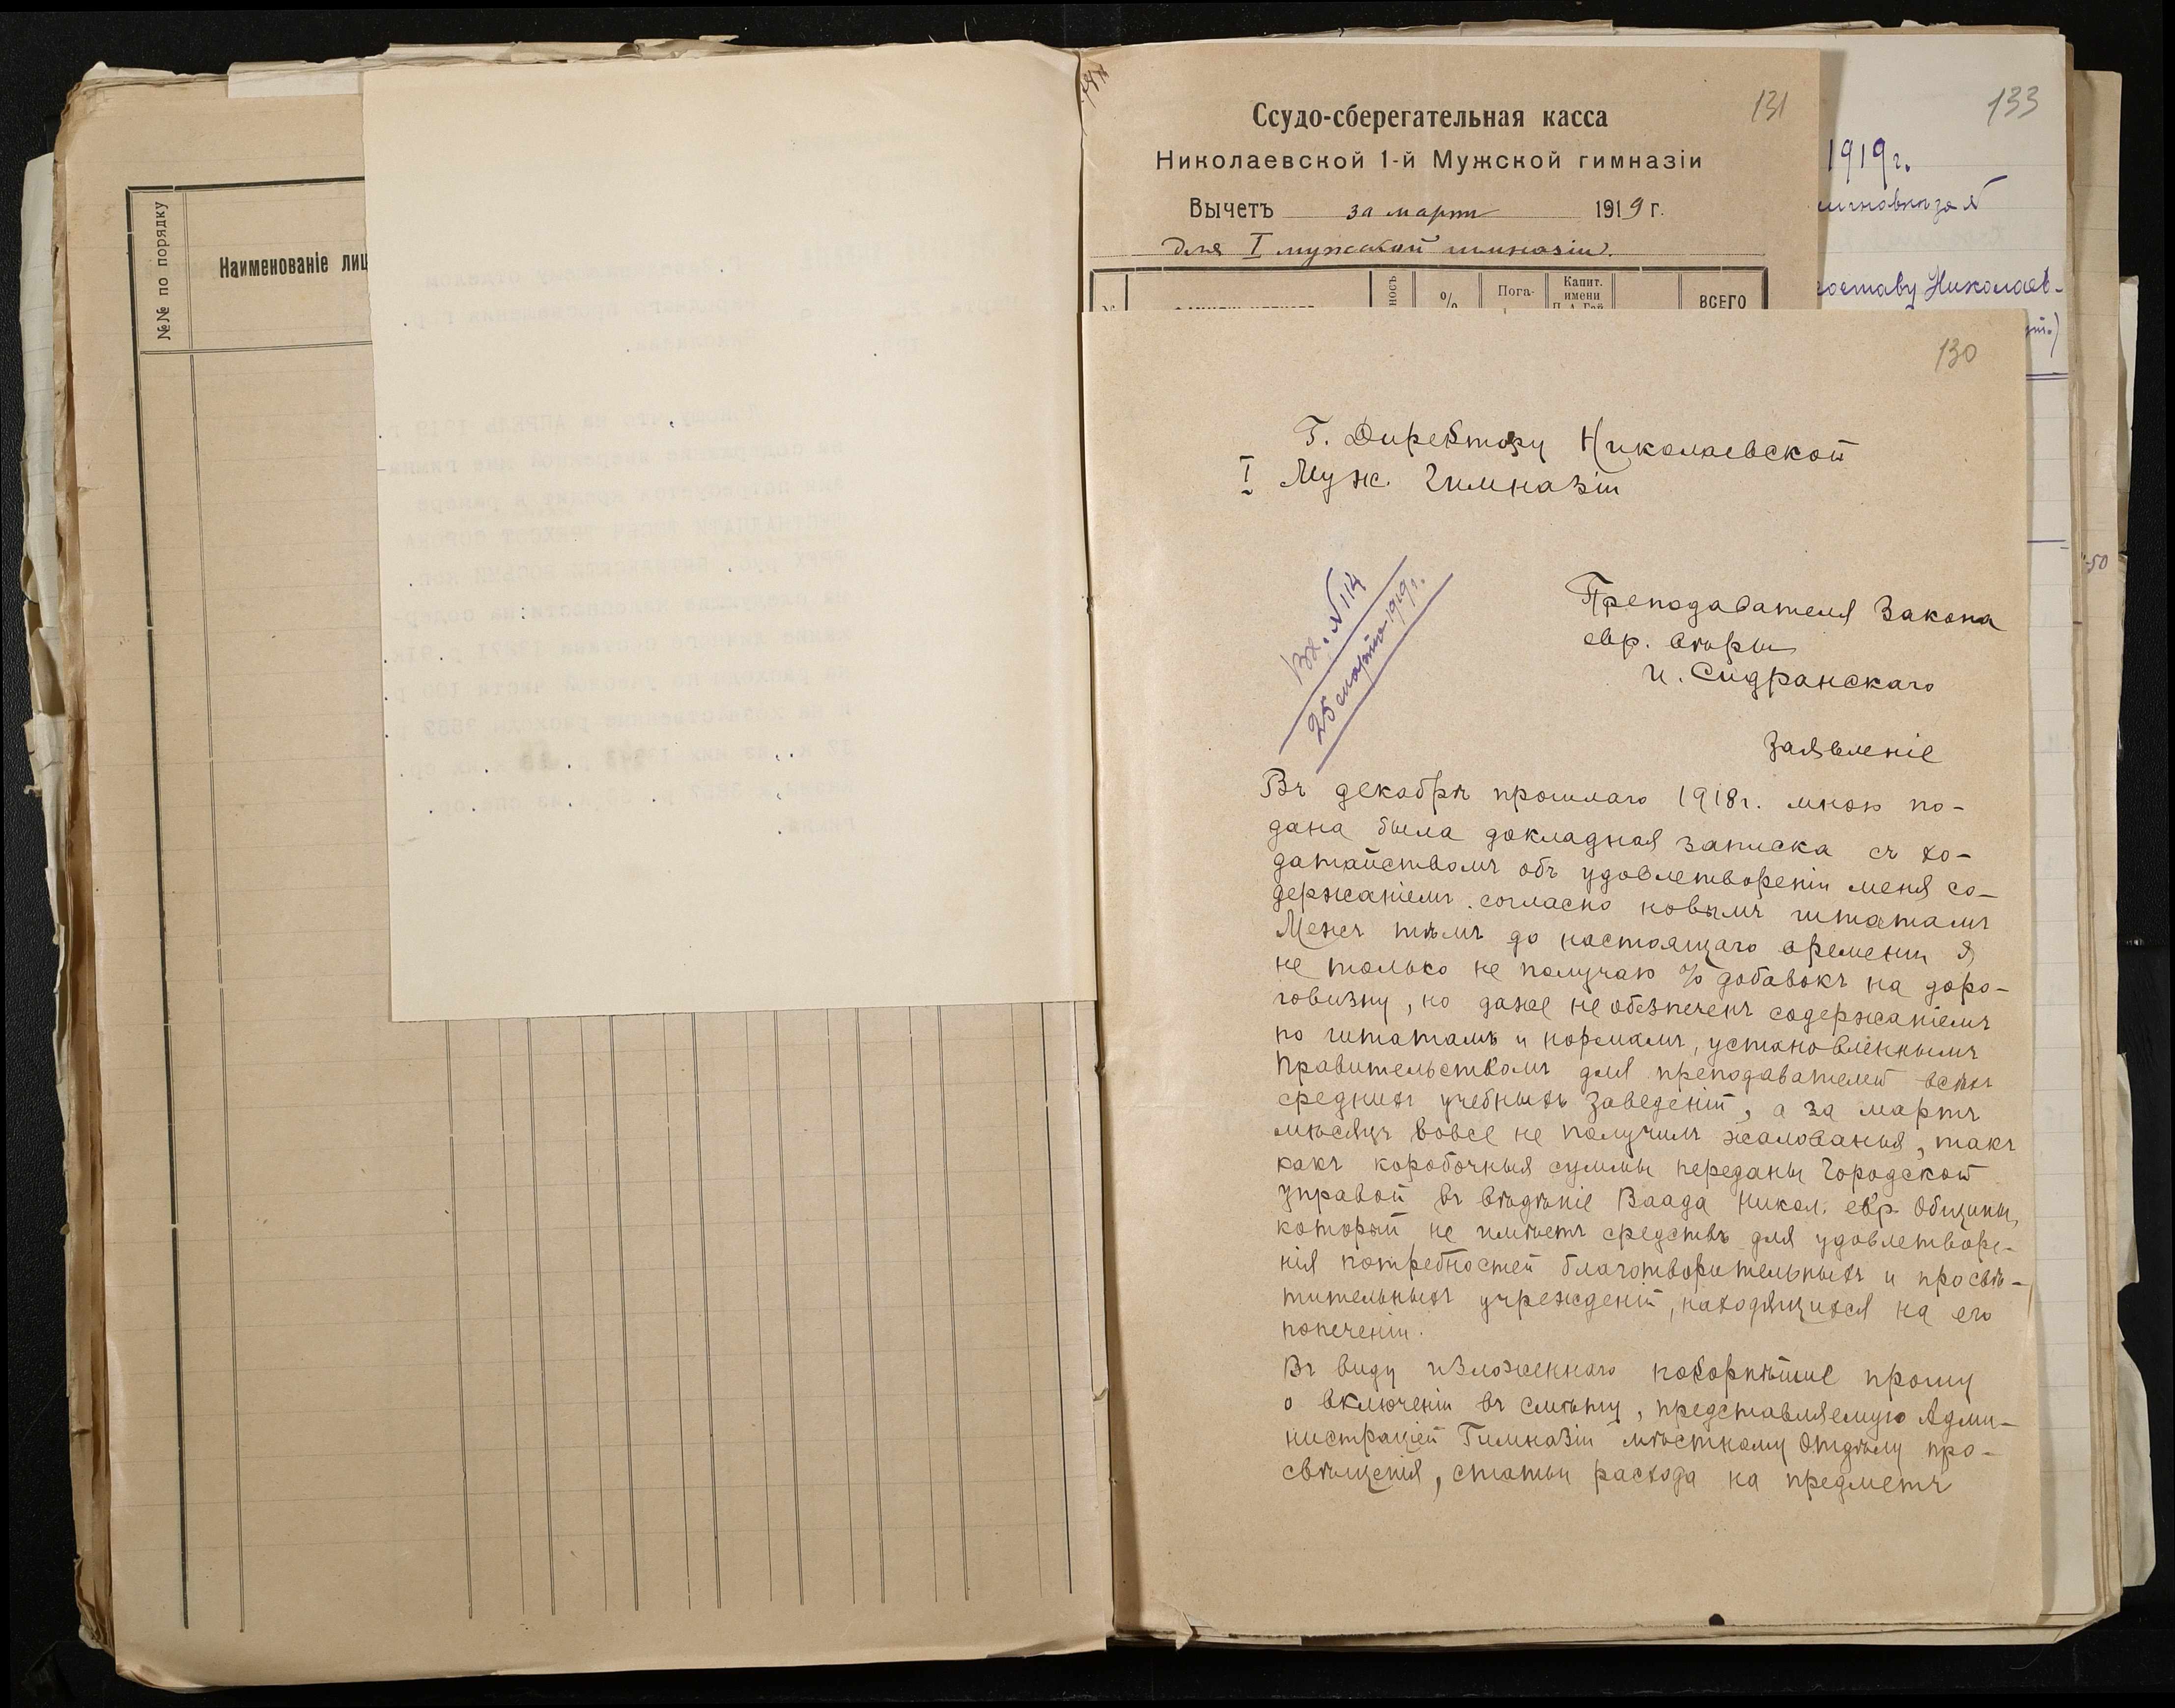 №№ по порядку
Наименованіе лиц
131
Ссудо-сберегательная касса
Николаевской 1-й Мужской гимназіи
Вычетъ за мартъ 1919 г.
для I мужской гимназіи.
%
Пога-
Капит.
имени
ВСЕГО
133
1919г.
составу Николаев-
50
130
Г. Директору Николаевской
I Муж. Гимназіи
Вх. №114
25 марта 1919г.
Преподавателя Закона
евр. вѣры
И. Сидранскаго
Заявленіе
Въ декабрѣ прошлаго 1918г. мною по-
дана была докладная записка съ хо-
датайствомъ объ удовлетвореніи меня со-
держаніемъ согласно новымъ штатамъ
Межъ тѣмъ до настоящаго времени я
не только не получаю % добавокъ на доро-
говизну, но даже не обезпеченъ содержаніемъ
по штатамъ и нормамъ, установленнымъ
Правительствомъ для преподавателей всѣхъ
среднихъ учебныхъ заведеній, а за мартъ
мѣсяцъ вовсе не получилъ жалованья, такъ
какъ коробочныя суммы переданы Городской
Управой въ вѣдѣніе Ваада Никол. евр. Общины,
который не имѣетъ средствъ для удовлетворе-
нія потребностей благотворительныхъ и просвѣ-
тительныхъ учрежденій, находящихся на его
попеченіи.
Въ виду изложеннаго покорнѣйше прошу
о включеніи въ смѣту, представляемую Адми-
нистраціей Гимназіи мѣстному Отдѣлу про-
свѣщенія, статьи расхода на предметъ